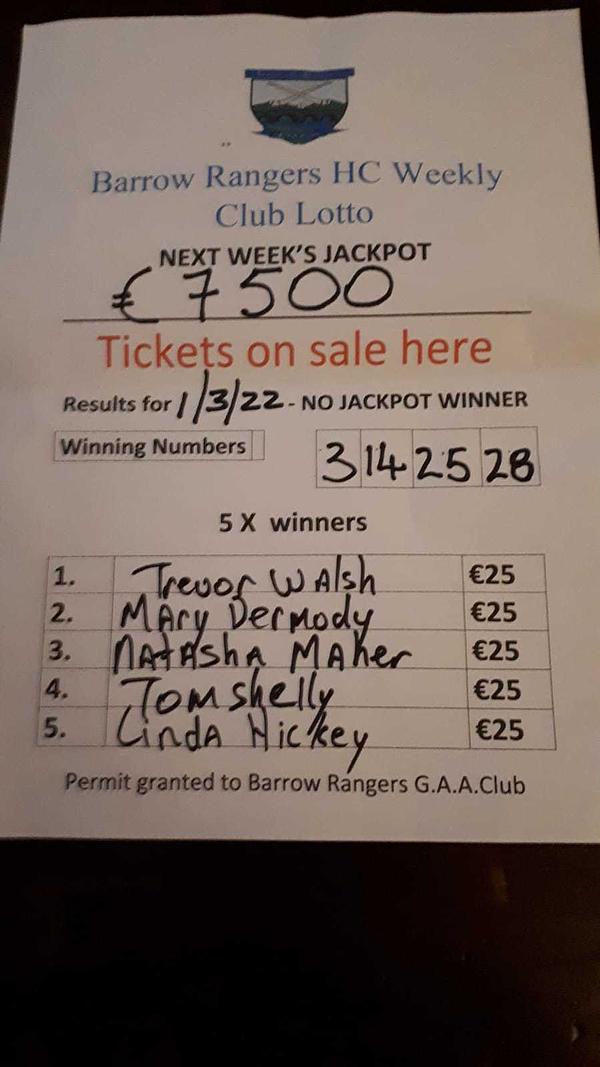 Barrow Rangers HC Weekly
Club Lotto
NEXT WEEK'S JACKPOT
€7500
Tickets on sale here
Results for 1/3/22 - NO JACKPOT WINNER
Winning Numbers 3 14 25 28
5 X winners
1. Trevor WAlsh €25
2. MAry Dermody €25
3. NAtAshA MAher €25
4. Tom shelly €25
5. LindA Hickey €25
Permit granted to Barrow Rangers G.A.A.Club